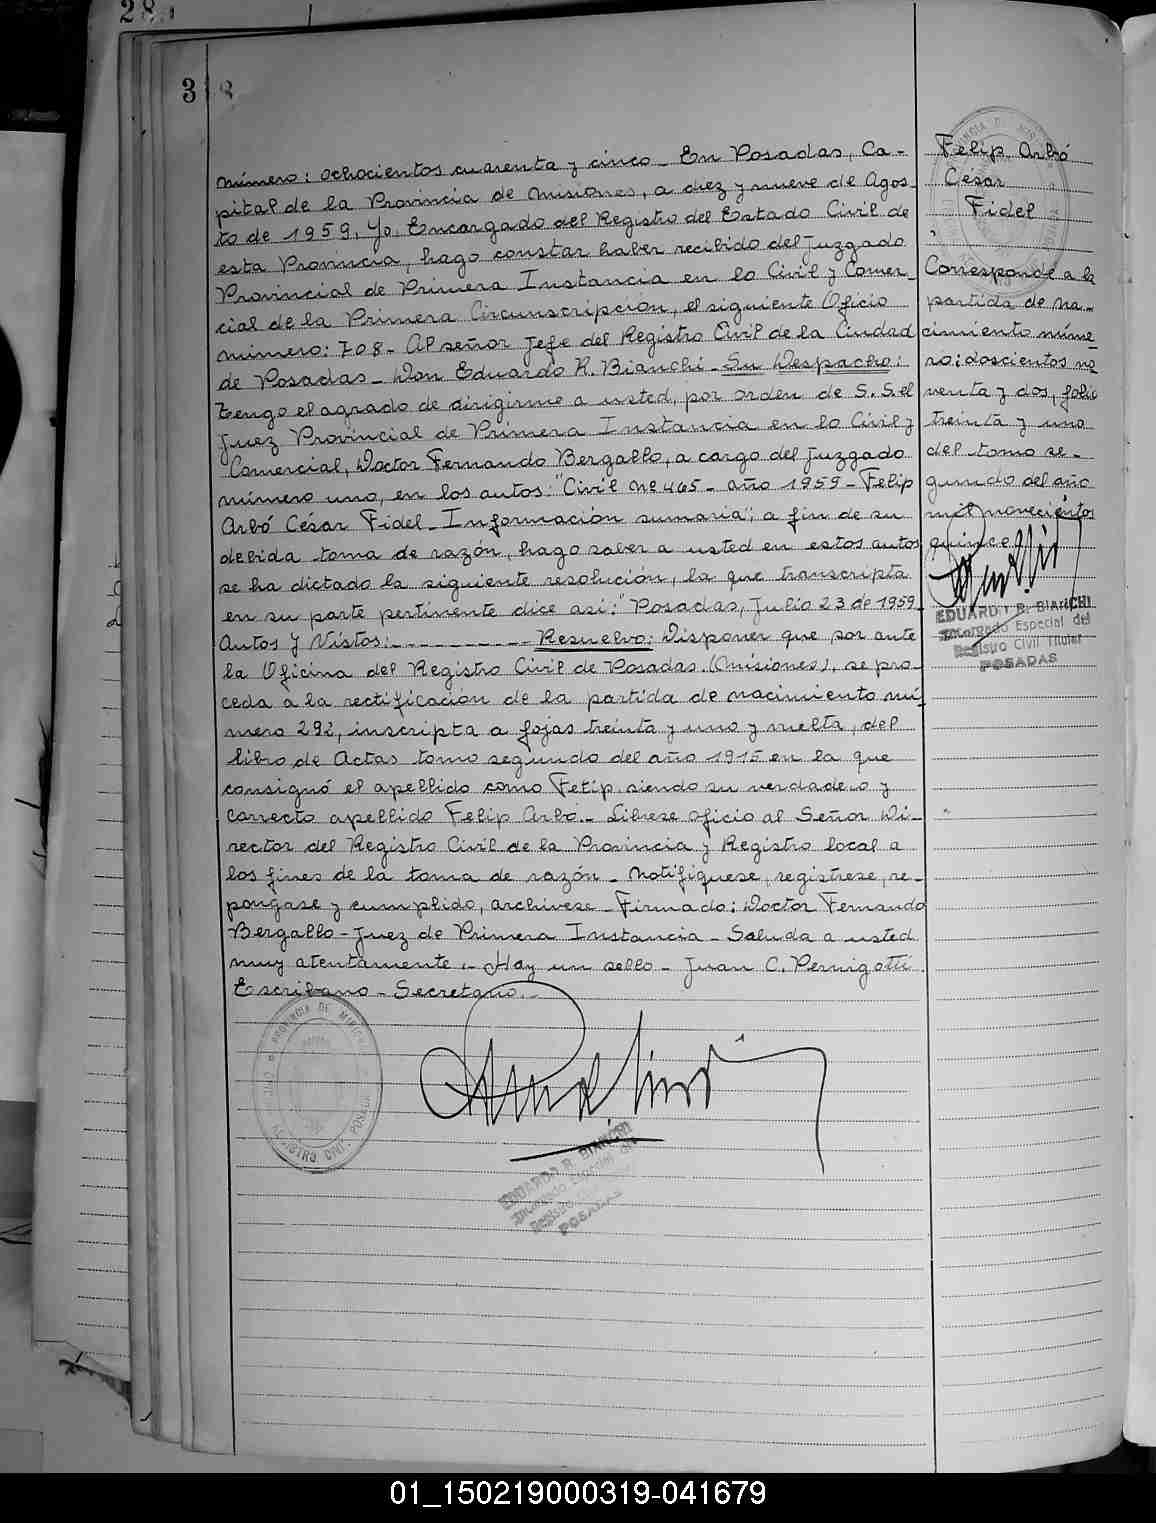 28
318
número: ochocientos cuarenta y cinco_ En Posadas, Ca-
pital de la Provincia de Misiones, a diez y nueve de Agos-
to de 1959, Yo, Encargado del Registro del Estado Civil de
esta Provincia, hago constar haber recibido del Juzgado
Provincial de Primera Instancia en lo Civil y Comer-
cial de la Primera Circunscripción, el siguiente Oficio
número: 708- Al señor Jefe del Registro Civil de la Ciudad
de Posadas_ Don Eduardo R. Bianchi_ Su Despacho:
Tengo el agrado de dirigirme a usted, por orden de S.S. el
Juez Provincial de Primera Instancia en lo Civil y
Comercial, Doctor Fernando Bergallo, a cargo del Juzgado
número uno, en los autos: "Civil Nº 465- año 1959- Felip
Arbó César Fidel_ Información sumaria"; a fin de su
debida toma de razón, hago saber a usted en estos autos
se ha dictado la siguiente resolución, la que transcripta
en su parte pertinente dice así: "Posadas, Julio 23 de 1959_
Autos y Vistos:_ _ _ _ _ _ _ _ _ Resuelvo: Disponer que por ante
la Oficina del Registro Civil de Posadas (Misiones), se pro_
ceda a la rectificación de la partida de nacimiento nú_
mero 292, inscripta a fojas treinta y uno y vuelta, del
libro de Actas tomo segundo del año 1915 en la que
consignó el apellido como Fetip, siendo su verdadero y
correcto apellido Felip Arbó._ Líbrese oficio al Señor Di_
rector del Registro Civil de la Provincia y Registro local a
los fines de la toma de razón_ Notifíquese, regístrese, re_
póngase y cumplido, archívese_ Firmado: Doctor Fernando
Bergallo-Juez de Primera Instancia_ Saluda a usted
muy atentamente._ Hay un sello_ Juan C. Pernigotti
Escribano_ Secretario._
PROVINCIA DE MISIONES
REGISTRO CIVIL POSADAS
EDUARDO R. BIANCHI
Encargado Especial del
Registro
POSADAS
Felip Arbó
César
Fidel
Corresponde a la
partida de na_
cimiento núme_
ro: doscientos no
venta y dos, folio
treinta y uno
del tomo se_
gundo del año
mil novecientos
quince
EDUARDO R. BIANCHI
Encargado Especial del
Registro Civil Titular
POSADAS
01_150219000319-041679